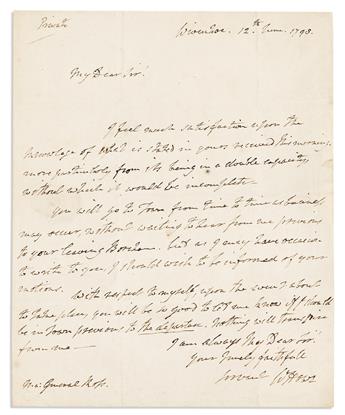 Private
Wivenhoe. 12th June. 1798.
My Dear Sir!
I feel much satisfaction upon the
knowledge of what is stated in yours received this morning,
more particularly from its being in a double capacity
without which it would be incomplete.
You will go to Town from time to time as business
may occur, without waiting to hear from me previous
to your leaving But as I may have occasion
to write to you, I should wish to be informed of your
motions.
With respect to myself, upon the event about
to take place, you will be so good to let me know if I should
be in Town previous to the departure. Nothing will transpire
from me —
I am always My Dear Sir!
Your Truly faithfull
Servant Wm Howe
Ma: General Ross.